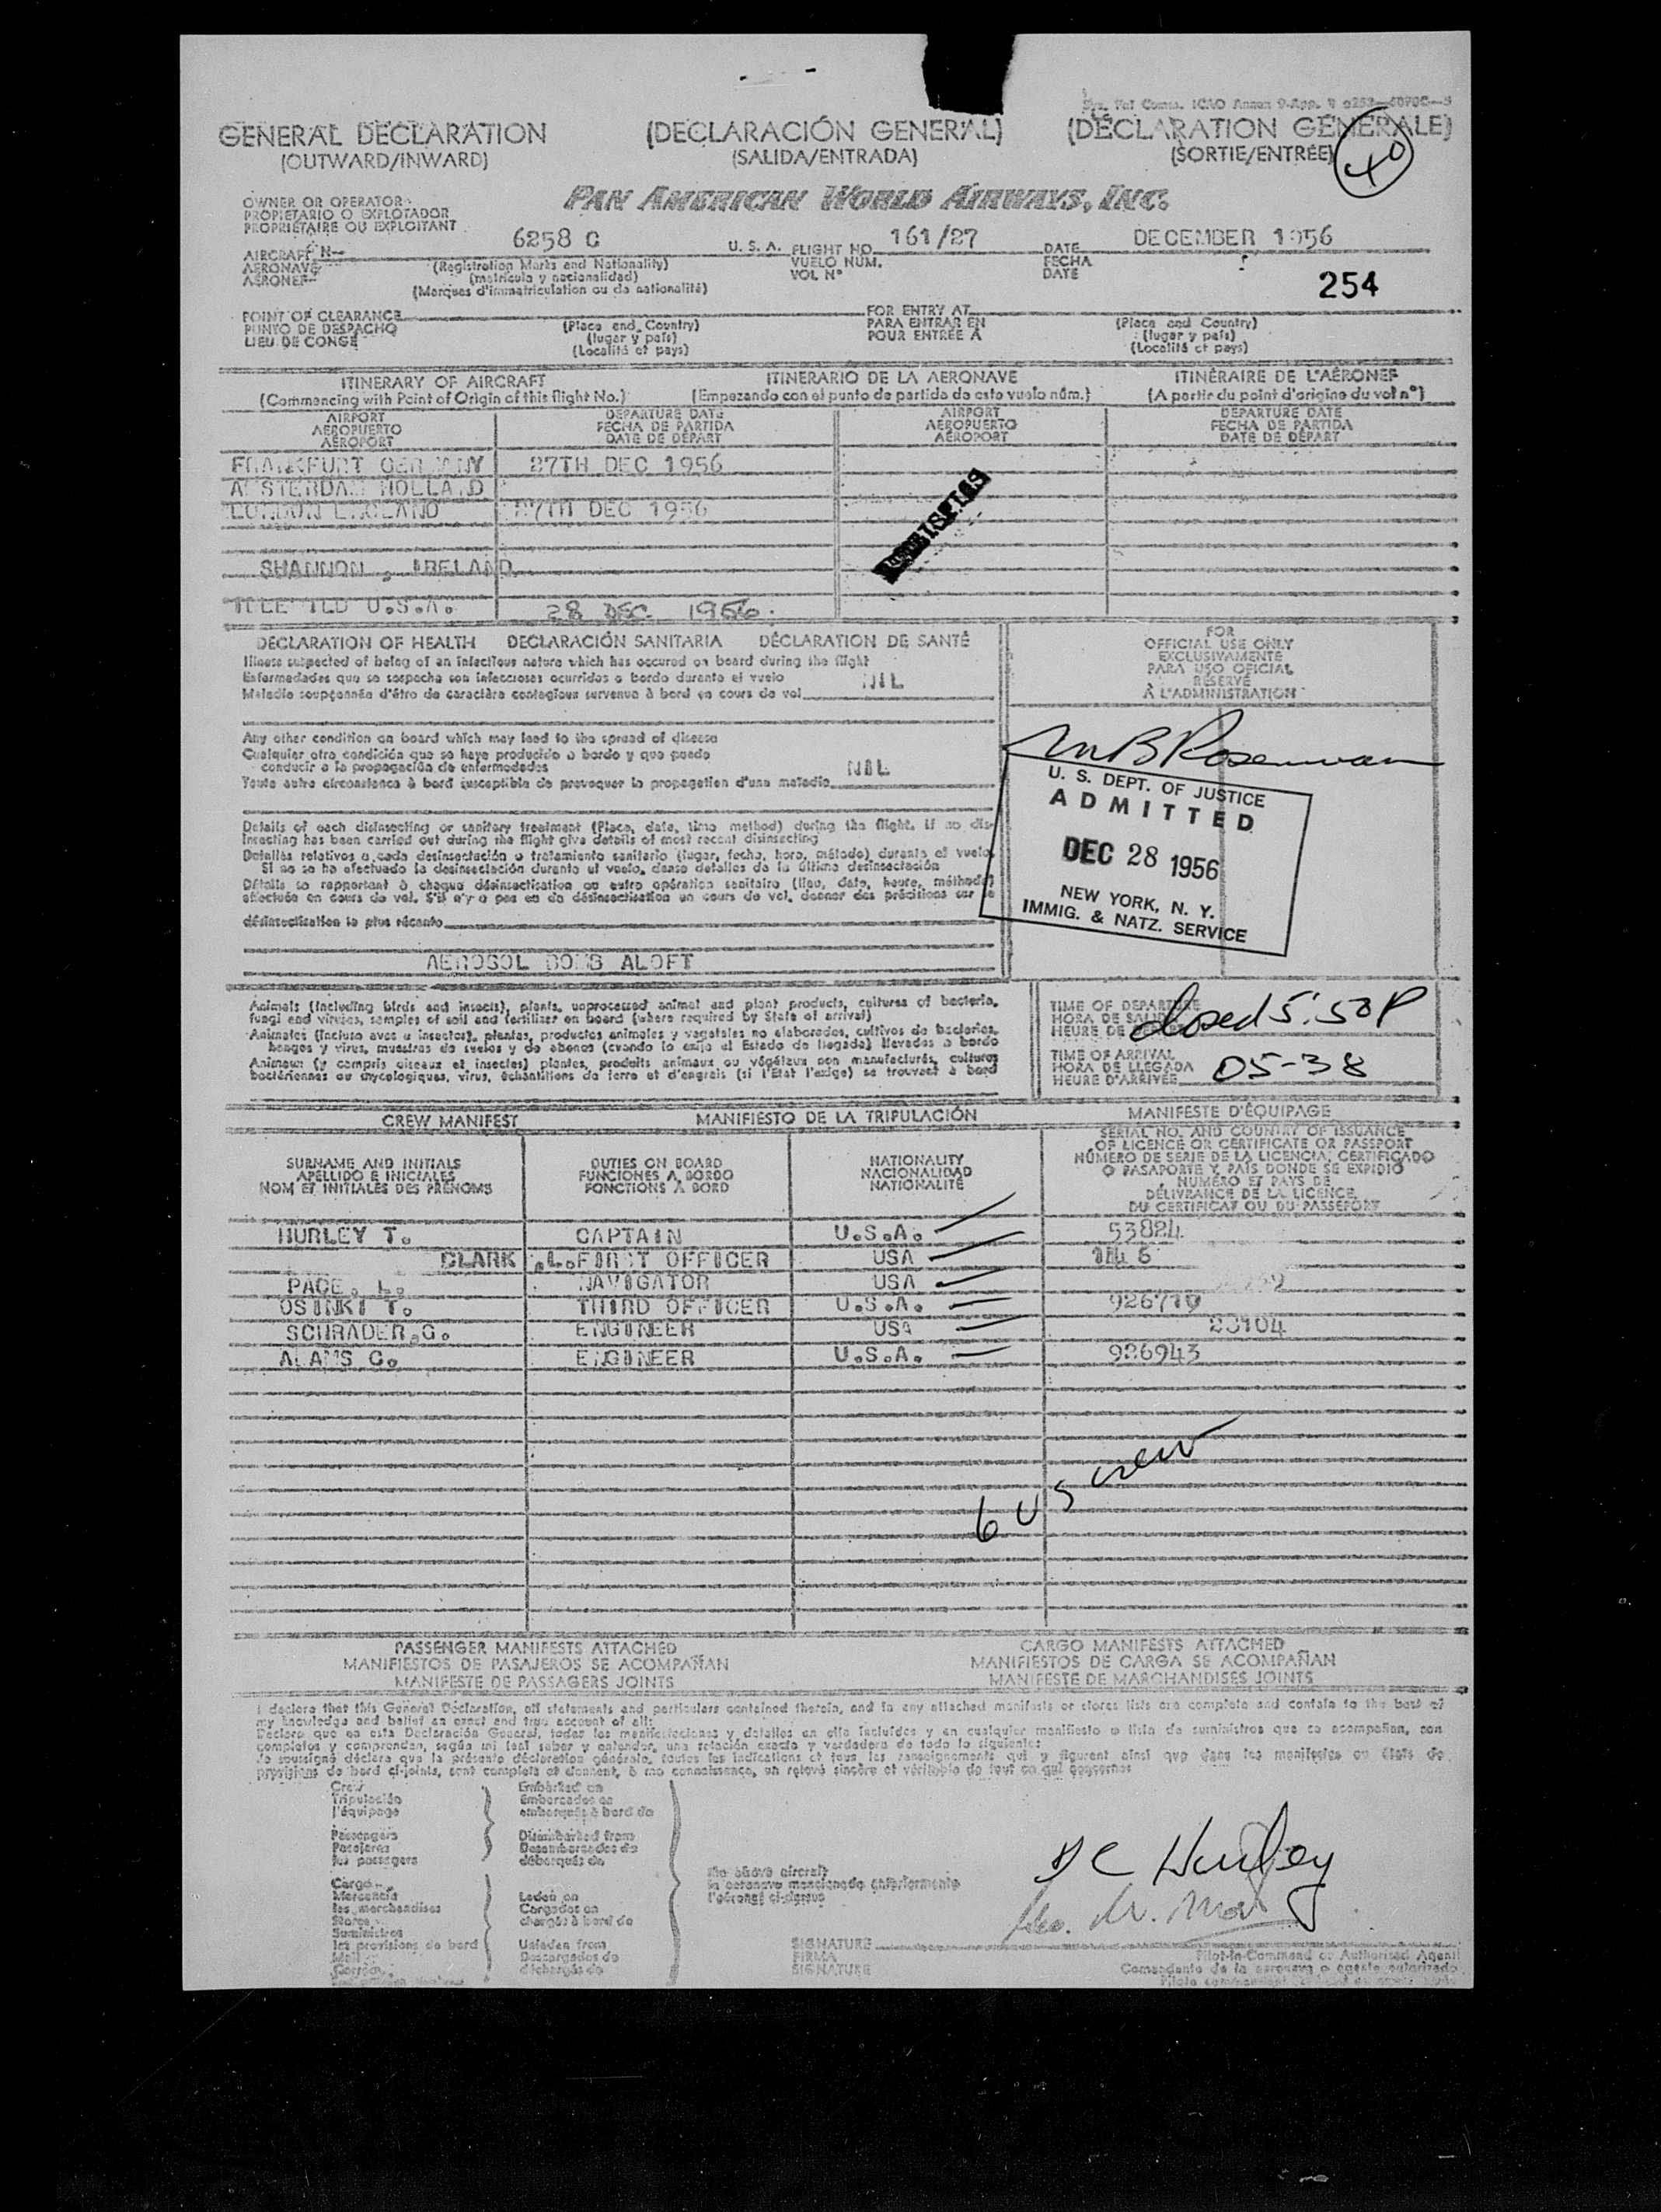 GENERAL DECLARATION (DECLARACIÓN GENERAL) (DÉCLARATION GÉNÉRALE)
(OUTWARD/INWARD) (SALIDA/ENTRADA) (SORTIE/ENTRÉE)
OWNER OR OPERATOR
PROPIETARIO O EXPLOTADOR
PROPRIÉTAIRE OU EXPLOITANT
PAN AMERICAN WORLD AIRWAYS, INC.
AIRCRAFT N- 6258 C U. S. A. FLIGHT NO. 161/27 DATE DECEMBER 1956
AERONAVE (Registration Marks and Nationality) VUELO NÚM. FECHA
AÉRONEF (matrícula y nacionalidad) VOL N° DATE
(Marques d'immatriculation ou de nationalité)
254
POINT OF CLEARANCE FOR ENTRY AT
PUNTO DE DESPACHO (Place and Country) PARA ENTRAR EN (Place and Country)
LIEU DE CONGÉ (lugar y país) POUR ENTRÉE À (lugar y país)
(Localité et pays) (Localité et pays)
ITINERARY OF AIRCRAFT ITINERARIO DE LA AERONAVE ITINÉRAIRE DE L'AÉRONEF
(Commencing with Point of Origin of this flight No.) (Empezando con el punto de partida de este vuelo núm.) (A partir du point d'origine du vol n°)
AIRPORT DEPARTURE DATE AIRPORT DEPARTURE DATE
AEROPUERTO FECHA DE PARTIDA AEROPUERTO FECHA DE PARTIDA
AÉROPORT DATE DE DÉPART AÉROPORT DATE DE DÉPART
FRANKFURT GERMANY 27TH DEC 1956
AMSTERDAM HOLLAND
LONDON ENGLAND 27TH DEC 1956
SHANNON, IRELAND
U.S.A. 28 DEC 1956
DECLARATION OF HEALTH DECLARACIÓN SANITARIA DÉCLARATION DE SANTÉ
Illness suspected of being of an infectious nature which has occured on board during the flight
Enfermedades que se sospecha son infecciosas ocurridas a bordo durante el vuelo NIL
Maladie soupçonnée d'être de caractère contagieux survenue à bord en cours de vol
Any other condition on board which may lead to the spread of disease
Cualquier otra condición que se haya producido a bordo y que puede
conducir a la propagación de enfermedades NIL
Toute autre circonstance à bord susceptible de provoquer la propagation d'une maladie
Details of each disinsecting or sanitary treatment (Place, date, time method) during the flight. If no dis-
insecting has been carried out during the flight give details of most recent disinsecting
Detalles relativos a cada desinsectación o tratamiento sanitario (lugar, fecha, hora, método) durante el vuelo.
Si no se ha efectuado la desinsectación durante el vuelo, danse detalles de la última desinsectación
Détails se rapportant à chaque désinsectisation ou autre opération sanitaire (lieu, date, heure, méthode)
effectuée en cours de vol. S'il n'y a pas eu de désinsectisation en cours de vol, donner des précisions sur la
désinsectisation la plus récente
AEROSOL BOMB ALOFT
FOR
OFFICIAL USE ONLY
EXCLUSIVAMENTE
PARA USO OFICIAL
RÉSERVÉ
À L'ADMINISTRATION
U. S. DEPT. OF JUSTICE
ADMITTED
DEC 28 1956
NEW YORK, N. Y.
IMMIG. & NATZ. SERVICE
Animals (including birds and insects), plants, unprocessed animal and plant products, cultures of bacteria,
fungi and viruses, samples of soil and fertilizer on board (where required by State of arrival)
Animales (incluso aves e insectos), plantas, productos animales y vegetales no elaborados, cultivos de bacterias,
hongos y virus, muestras de suelos y de abonos (cuando lo exija el Estado de llegada) llevados a bordo
Animaux (y compris oiseaux et insectes) plantes, produits animaux ou végétaux non manufacturés, cultures
bactériennes ou mycologiques, virus, échantillons de terre et d'engrais (si l'Etat l'exige) se trouvant à bord
TIME OF DEPARTURE
HORA DE SALIDA closed 5:50P
HEURE DE
TIME OF ARRIVAL
HORA DE LLEGADA 05-38
HEURE D'ARRIVÉE
CREW MANIFEST MANIFIESTO DE LA TRIPULACIÓN MANIFESTE D'ÉQUIPAGE
SURNAME AND INITIALS
APELLIDO E INICIALES
NOM ET INITIALES DES PRÉNOMS
DUTIES ON BOARD
FUNCIONES A BORDO
FONCTIONS À BORD
NATIONALITY
NACIONALIDAD
NATIONALITÉ
SERIAL NO. AND COUNTRY OF ISSUANCE
OF LICENCE OR CERTIFICATE OR PASSPORT
NÚMERO DE SERIE DE LA LICENCIA, CERTIFICADO
O PASAPORTE Y PAÍS DONDE SE EXPIDIÓ
NUMÉRO ET PAYS DE
DÉLIVRANCE DE LA LICENCE,
DU CERTIFICAT OU DU PASSEPORT
HURLEY T. CAPTAIN U.S.A. 53824
CLARK .L. FIRST OFFICER USA
PAGE. L. NAVIGATOR USA
OSINKI T. THIRD OFFICER U.S.A. 926710
SCHRADER.G. ENGINEER USA 23104
ADAMS G. ENGINEER U.S.A. 926943
6 US crew
PASSENGER MANIFESTS ATTACHED CARGO MANIFESTS ATTACHED
MANIFIESTOS DE PASAJEROS SE ACOMPAÑAN MANIFIESTOS DE CARGA SE ACOMPAÑAN
MANIFESTE DE PASSAGERS JOINTS MANIFESTE DE MARCHANDISES JOINTS
I declare that this General Declaration, all statements and particulars contained therein, and in any attached manifests or stores lists are complete and contain to the best of
my knowledge and belief an exact and true account of all:
Declaro que en esta Declaración General, todas las manifestaciones y detalles en ella incluidos y en cualquier manifiesto o lista de suministros que se acompañan, son
completos y comprenden, según mi leal saber y entender, una relación exacta y verdadera de todo lo siguiente:
Je soussigné déclare que la présente déclaration générale, toutes les indications et tous les renseignements qui y figurent ainsi que dans les manifestes ou états de
provisions de bord ci-joints, sont complets et donnent, à ma connaissance, un relevé sincère et véritable de tout ce qui concerne
Crew Embarked on
Tripulación Embarcados en
l'équipage embarqués à bord de
Passengers Disembarked from
Pasajeros Desembarcados de
les passagers débarqués de
the above aircraft
la aeronave mencionada anteriormente
l'aéronef ci-dessus
Cargo
Mercancía Laden on
les marchandises Cargados en
Stores chargés à bord de
Suministros
les provisions de bord Unladen from
Mail Descargados de
Correo déchargés de
D C Hurley
SIGNATURE Pilot-in-Command or Authorised Agent
FIRMA Comandante de la aeronave o agente autorizado
SIGNATURE